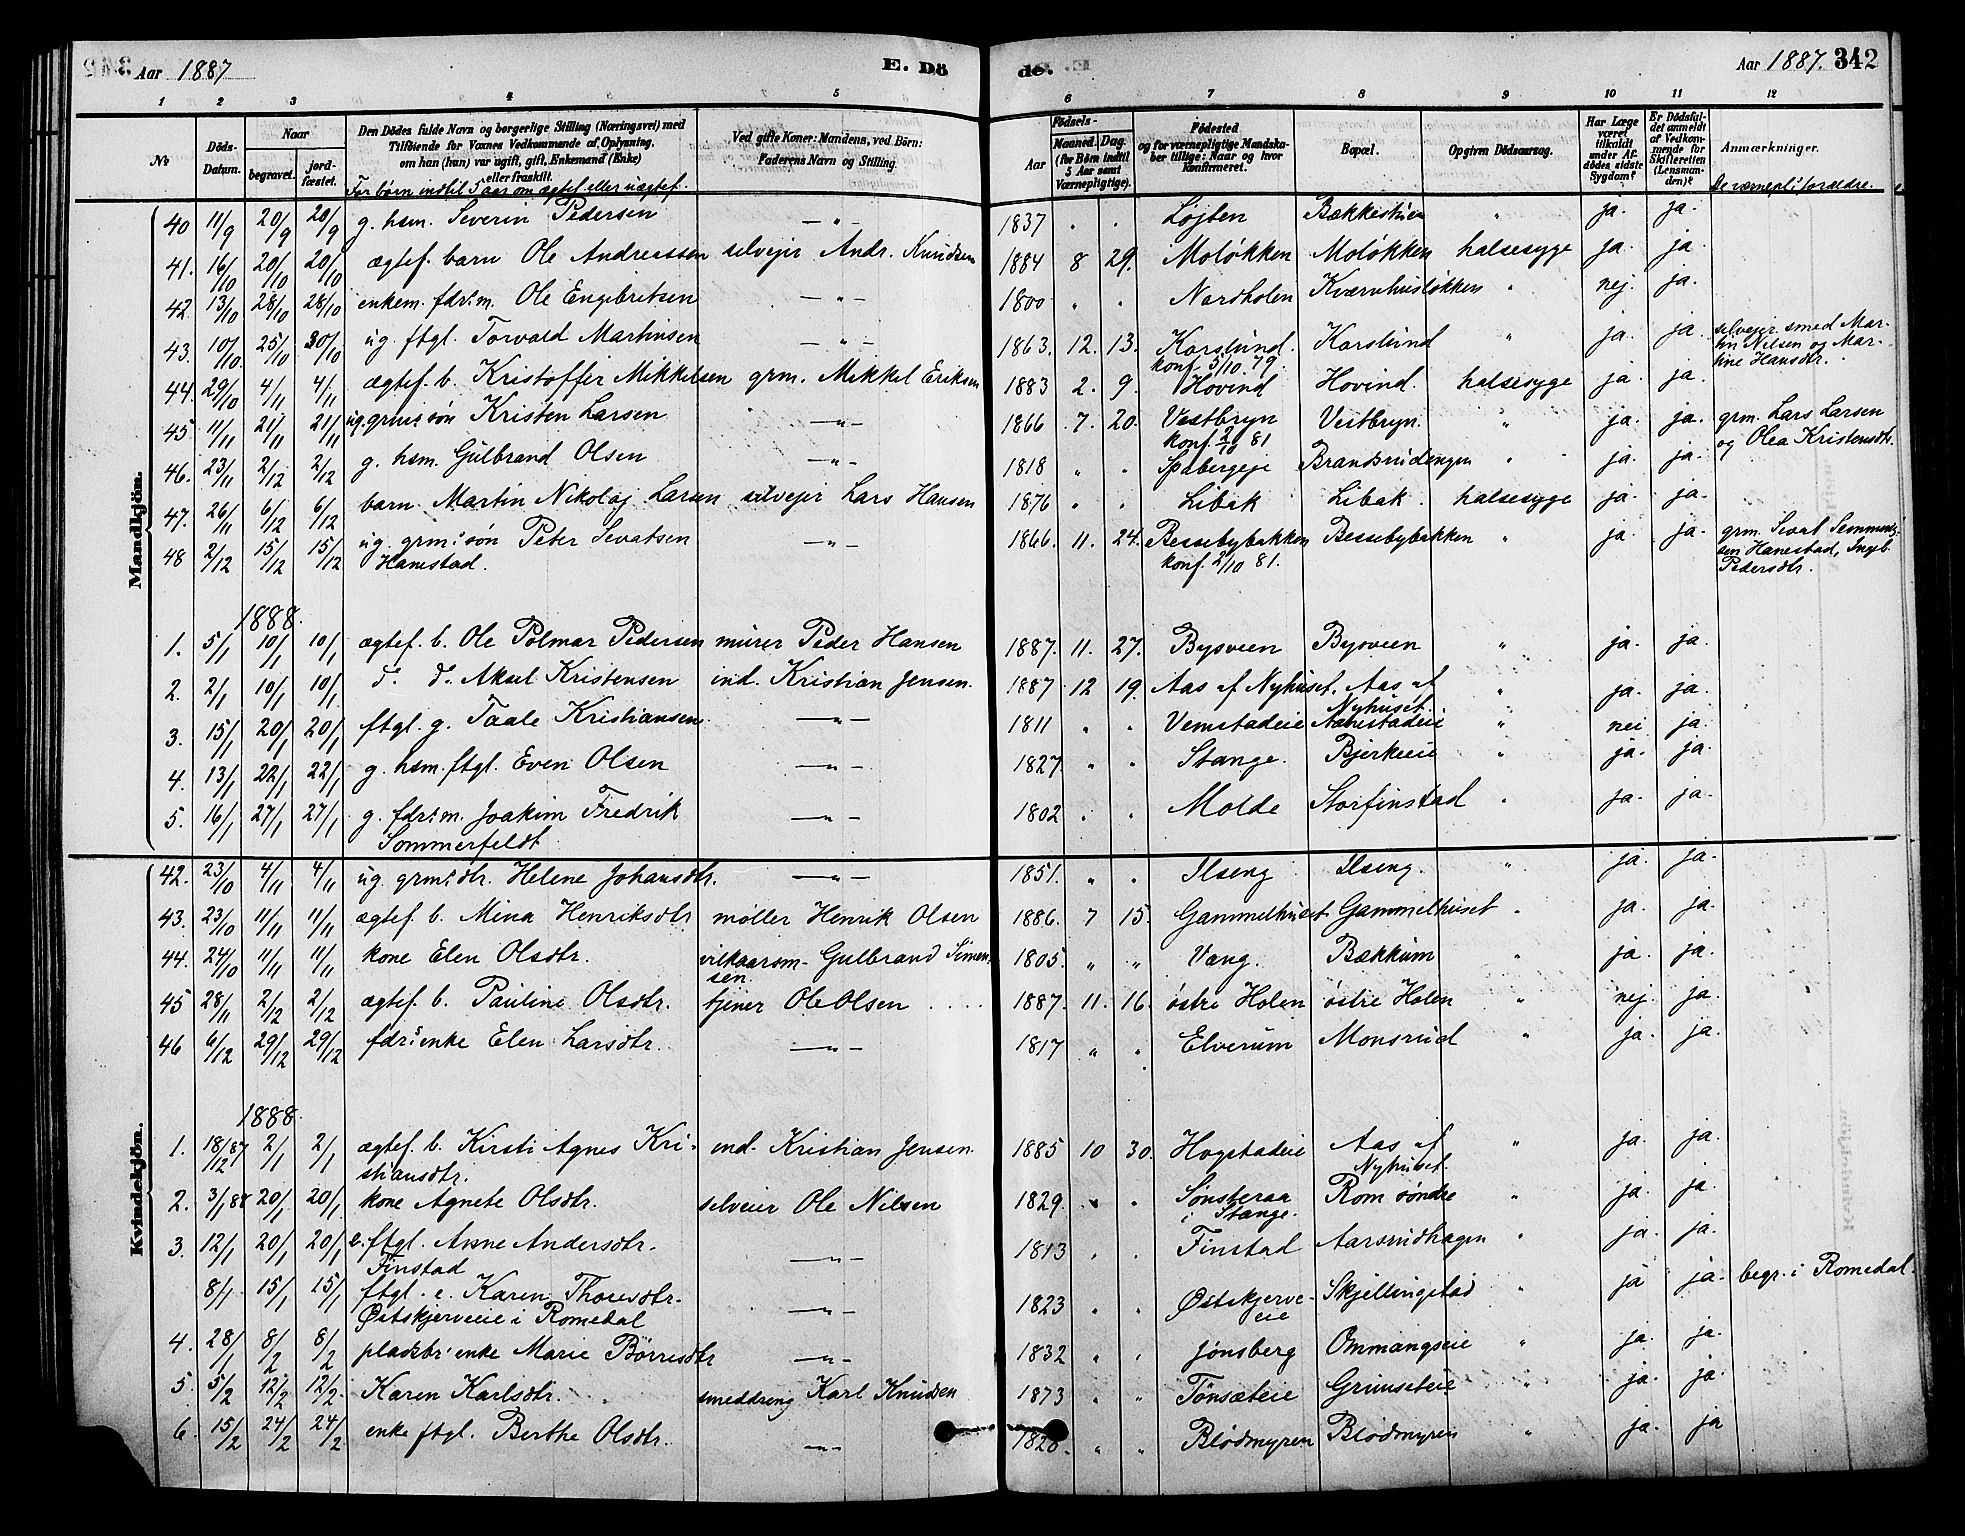 Aar 1887 E. Dö de. Aar 1887. 342
1 2 3 4 5 6 7 8 9 10 11 12
No
Döds-Datum.
Naar
begravet. jordfæstet.
Den Dödes fulde Navn og borgerlige Stilling (Næringsvei) med
Tilföiende for Voxnes Vedkommende af Oplysning,
om han (hun) var ugift, gift, Enkemand (Enke)
eller fraskilt.
For børn indtil 5 aar om ægtef. eller uægtef.
Ved gifte Koner: Mandens, ved Börn:
Faderens Navn og Stilling.
Födsels-
Aar Maaned. Dag.
(for Börn indtil
5 Aar samt
Værnepligtige).
Födested
og for værnepligtige Mandskaber
tillige: Naar og hvor
Konfirmeret.
Bopæl.
Opgiven Dödsaarsag.
Har Læge
været
tilkaldt
under Afdödes
sidste
Sygdom?
Er Dödsfaldet
anmeldt
af Vedkommende
for
Skifteretten
(Lensmanden)?
Anmærkninger.
De værnepl.s forældre.
Mandkjön.
40 11/9 20/9 20/9 g. hsm. Severin Pedersen — " — 1837 " " Løjten Bækkestuen " ja. ja.
41. 16/10 20/10 20/10 ægtef. barn Ole Andreassen selvejer Andr. Knudsen 1884 8 29. Moløkken Moløkken halsesyge ja. ja.
42. 13/10 28/10 28/10 enkem. fdr.m. Ole Engebretsen — " — 1800 " " Nordholen Kværnhusløkken " nej. ja.
43. 10/10 25/10 30/10 ug. ftgl. Torvald Martinsen — " — 1863. 12. 13. Korslund. Korslund " ja. ja. selvejer smed Mar-
konf. 5/10 79. tin Nilsen og Mar-
tine Hansdtr.
44. 29/10 4/11 4/11 ægtef. b. Kristoffer Mikkelsen grm. Mikkel Eriksen 1883 2. 9. Hovind Hovind. halsesyge ja. ja.
45 11/11 21/11 21/11 ug. grm.s søn Kristen Larsen — " — 1866 7. 20. Vestbryn Vestbryn. " ja. ja. grm. Lars Larsen
konf. 2/10 81 og Olea Kristensdtr.
46. 23/11 2/12 2/12 g. hsm. Gulbrand Olsen — " — 1818 " " Spabergeje Brandsrudengen " ja. ja.
47. 26/11 6/12 6/12 barn Martin Nikolaj Larsen selvejer Lars Hansen 1876 " " Libak Libak. halsesyge ja. ja.
48 2/12 15/12 15/12 ug. grm.s søn Peter Sevatsen — " — 1866. 11. 24. Bessebybakken Bessebybakken " ja. ja. grm. Sevat
Hanestad. konf. 2/10 81. Hanestad, Ingeb.
Pedersdtr.
1888.
1. 5/1 10/1 10/1 ægtef. b. Ole Polmar Pedersen murer Peder Hansen 1887. 11. 27. Bysveen Bysveen " ja. ja.
2. 2/1 10/1 10/1 d. d. Aksel Kristensen ind. Kristian Jensen. 1887 12 19. Aas af Nyhuset. Aas af " ja. ja.
Nyhuset.
3. 15/1 20/1 20/1 ftgl. g. Taale Kristiansen. — " — 1811 " " Vemstadeie " nei ja.
4. 13/1 22/1 22/1 g. hsm. ftgl. Even Olsen — " — 1827 " " Stange. Bjerkeeie " ja. ja.
5. 16/1 27/1 27/1 g. fdr.m. Joakim Fredrik — " — 1802 " " Molde Storfinstad " ja. ja.
Sommerfeldt
Kvindekjön.
42. 23/10 4/11 4/11 ug. grm.s dtr. Helene Johansdtr. — " — 1851. " " Ilseng Ilseng. " ja. ja.
43. 23/10 11/11 11/11 ægtef. b. Mina Henriksdtr. møller Henrik Olsen 1886. 7 15. Gammelhuset Gammelhuset " ja. ja.
44. 24/10 11/11 11/11 kone Elen Olsdtr. vilkaarsm. Gulbrand Simen- 1805. " " Vang. Bækkum " ja. ja.
sen.
45 28/11 2/12 2/12 ægtef. b. Pauline Olsdtr. tjener Ole Olsen 1887. 11. 16. østre Holen østre Holen " nej. ja.
46 6/12 29/12 29/12 fdr.s enke Elen Larsdtr. — " — 1817 " " Elverum Monsrud " ja. ja.
1888.
1. 18/12 87 2/1 2/1 ægtef. b. Kirsti Agnes Kri- ind. Kristian Jensen. 1885 10 30. Hogstadeie Aas af " ja. ja.
stiansdtr. Nyhuset.
2. 3/1 88 20/1 20/1 kone Agnete Olsdtr. selveier Ole Nilsen 1829. " " Sønsteraa Rom søndre " ja. ja.
i Stange.
3. 12/1 20/1 20/1 e. ftgl. Anne Andersdtr. — " — 1813 " " Finstad Aarsrudhagen " ja. ja.
Finstad
8/1 15/1 15/1 ftgl. e. Karen Thoresdtr. — " — 1823 " " Østskjerve- Skjellingstad " ja ja. begr. i Romedal.
Østskjerveeie i Romedal eie
4. 28/1 8/2 8/2 pladsbr. enke Marie Börresdtr — " — 1832 " " Jønsberg Ommangseie " ja. ja.
5. 5/2 12/2 12/2 Karen Karlsdtr. smeddreng Karl Knudsen 1873 " " Tønsæteie Grimseteie " ja. ja.
6. 15/2 24/2 24/2 enke ftgl. Berthe Olsdtr. — " — 1828. " " Blødmyren Blødmyren " ja. ja